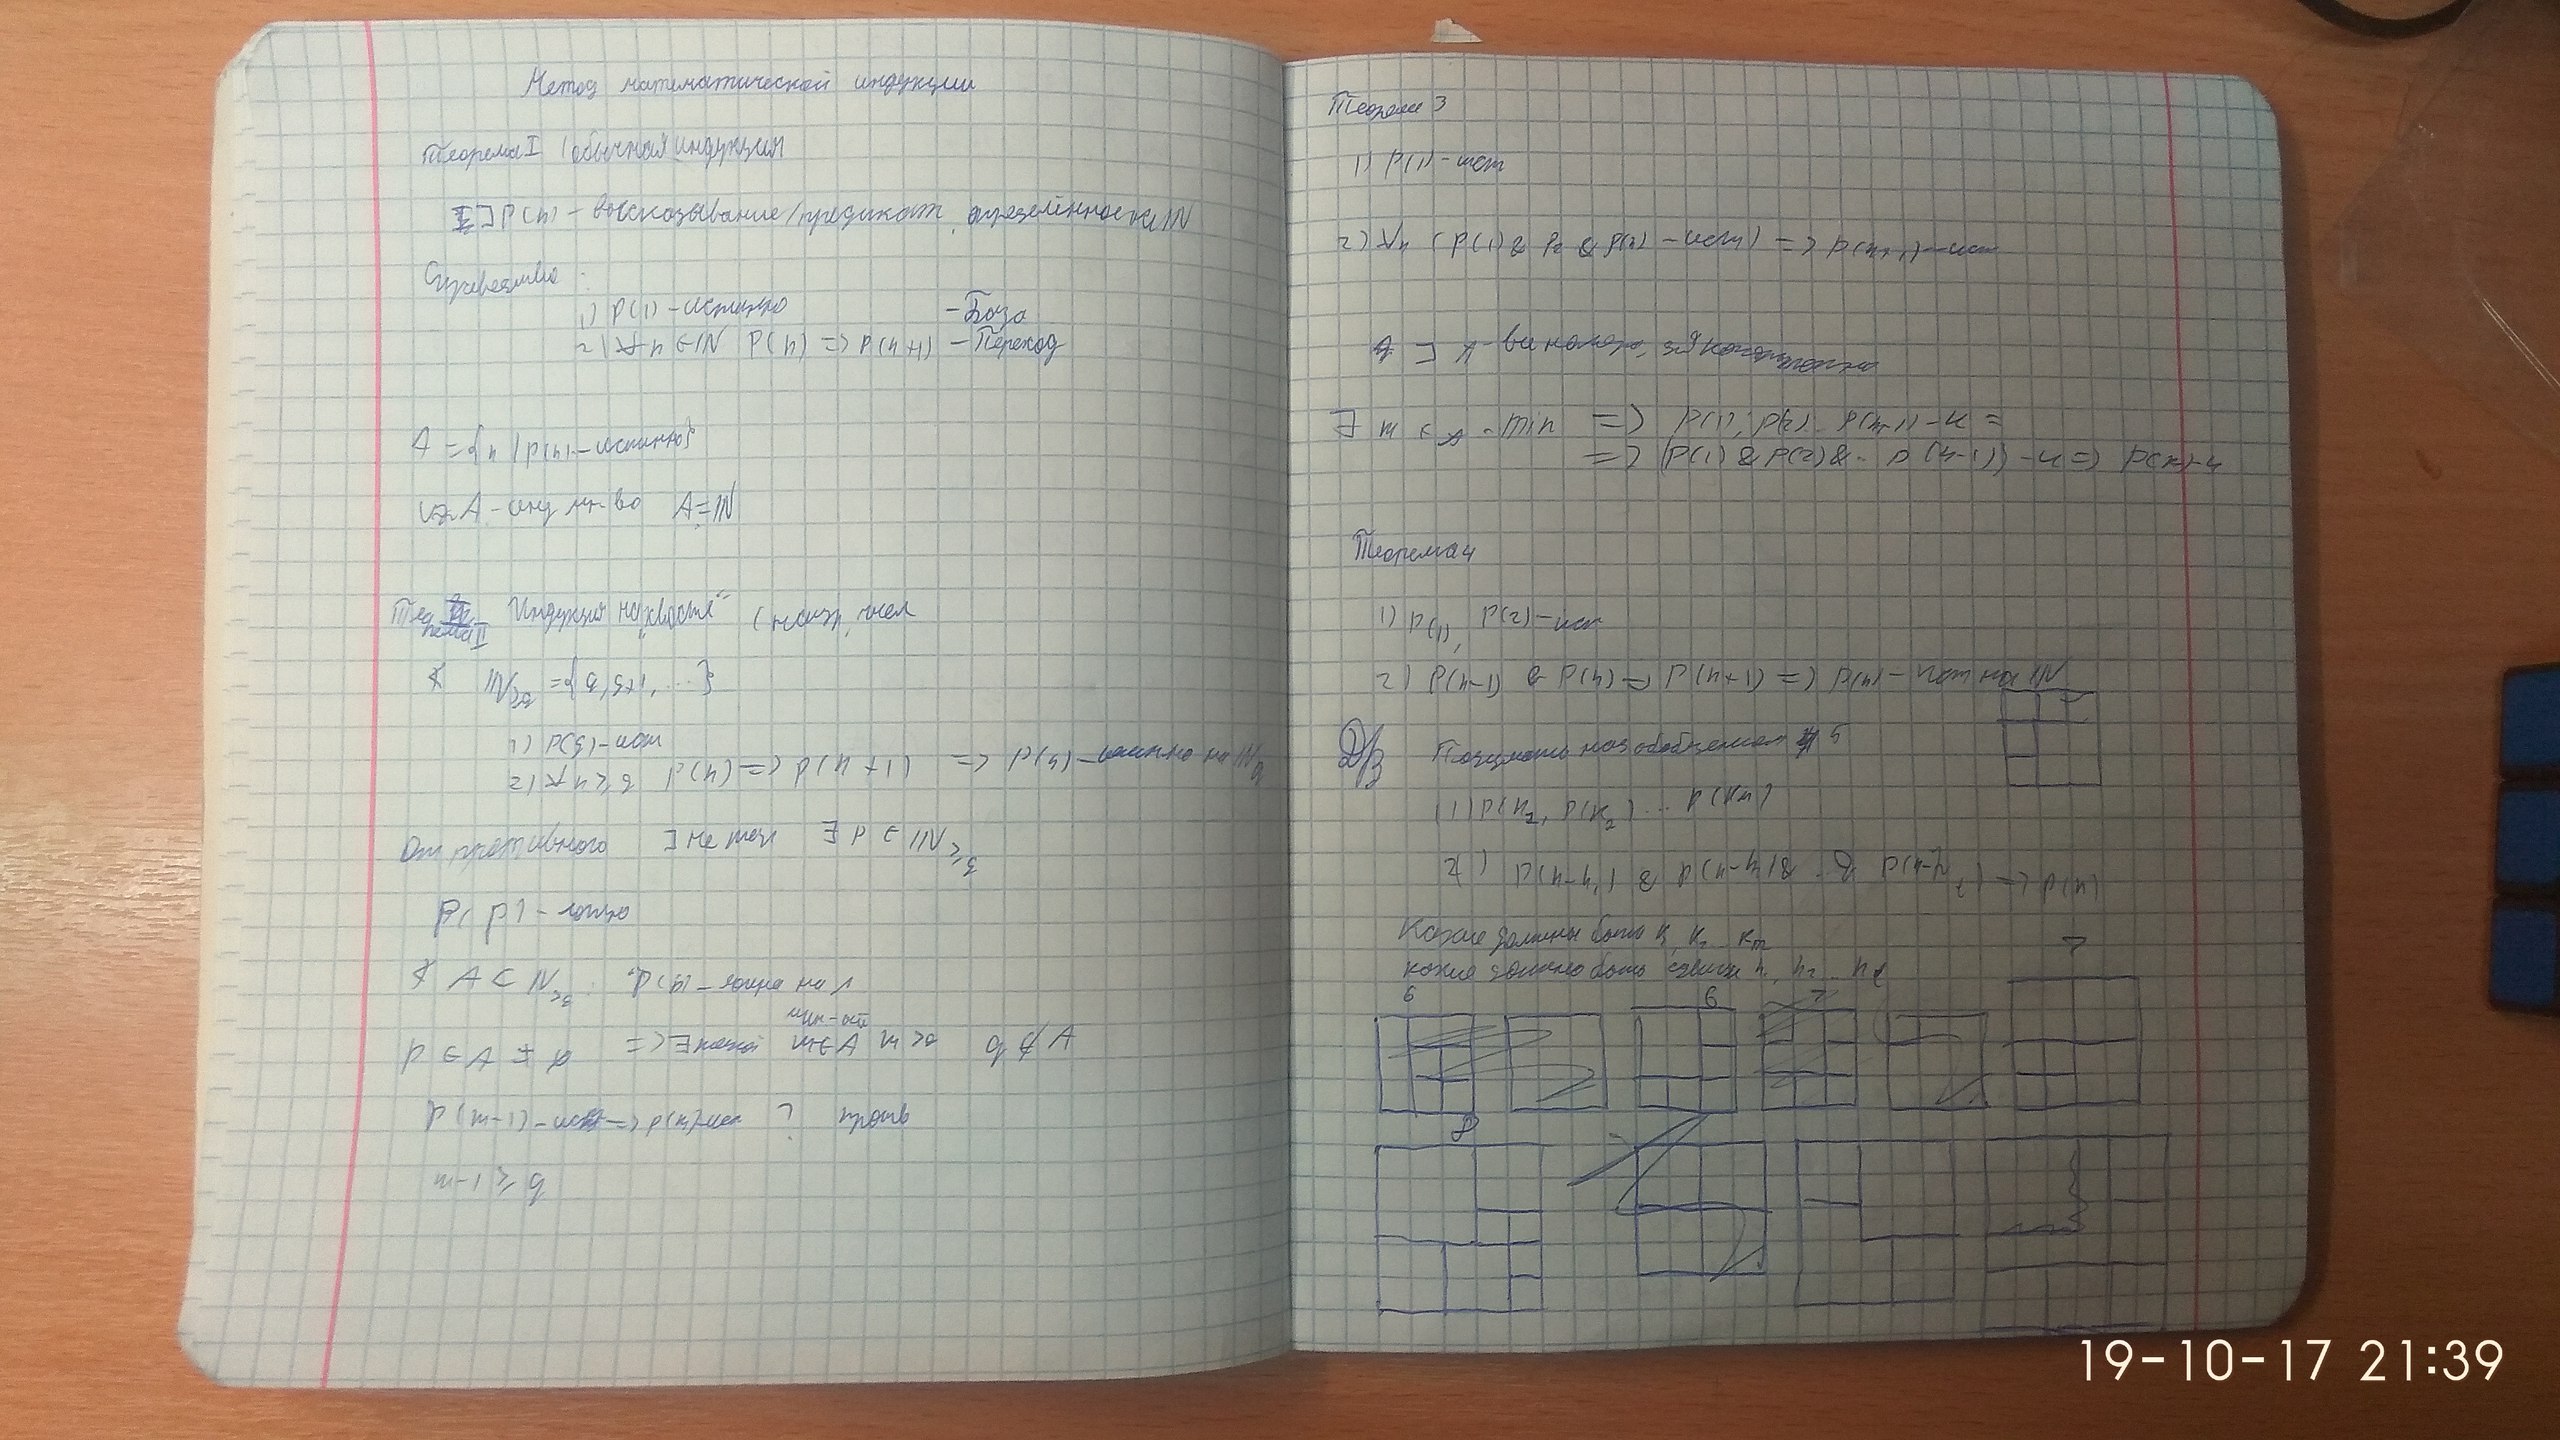 Метод математической индукции
Теорема I (обычная индукция)
∃ P(n) - высказывание/предикат, определённое на ℕ
Справедливо:
1) P(1) - истинно - База
2) ∀ n ∈ ℕ P(n) => P(n+1) - Переход
A = {n | P(n) - истинно}
A - инд мн-во A = ℕ
Теорема II Индукция на "хвосте" (нат. чисел
ℕ≥q = {q, q+1, ...}
1) P(q) - ист
2) ∀ n ≥ q P(n) => P(n+1) => P(n) - истинно на ℕq
От противного ∃ не так ∃ p ∈ ℕ≥q
P(p) - ложно
A ⊂ ℕ≥q: P(n) - ложна на A
p ∈ A ≠ ∅ => ∃ такой m ∈ A m > q q ∉ A
мин-ый
P(m-1) - ист => P(m) - ист ? против
m-1 ≥ q
Теорема 3
1) P(1) - ист
2) ∀n (P(1) & P2 & P(n) - ист) => P(n+1) - ист
∃ A - все номера, для
∃ m ∈ A - min => P(1), P(2).. P(m-1) - и =
=> (P(1) & P(2) & .. P(n-1)) - и => P(n) - и
Теорема 4
1) P(1), P(2) - ист
2) P(n-1) & P(n) => P(n+1) => P(n) - ист на ℕ
Д/з Подумать над обобщением 5
(1) P(k1, P(k2) ... P(km)
2) P(n-h1) & P(n-h) & .. & P(n-h) => P(n)
Какие должны быть k, k2 .. km
какие должно быть сдвиги h1 h2 .. hl
7
6
6
7
8